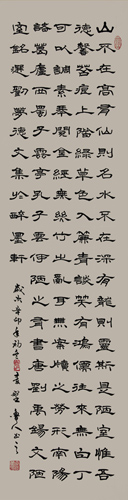 山不在高有仙則名水不在深有龍則靈斯是陋室惟吾
德馨苔痕上階綠草色入簾青談笑有鴻儒往來無白丁
可以調素琴閱金經無絲竹之亂耳無案牘之勞形南陽
諸葛廬西蜀子雲亭孔子云何陋之有右書唐劉禹錫陋
室銘選劉夢得文集於墨軒
歲次辛卯年初夏